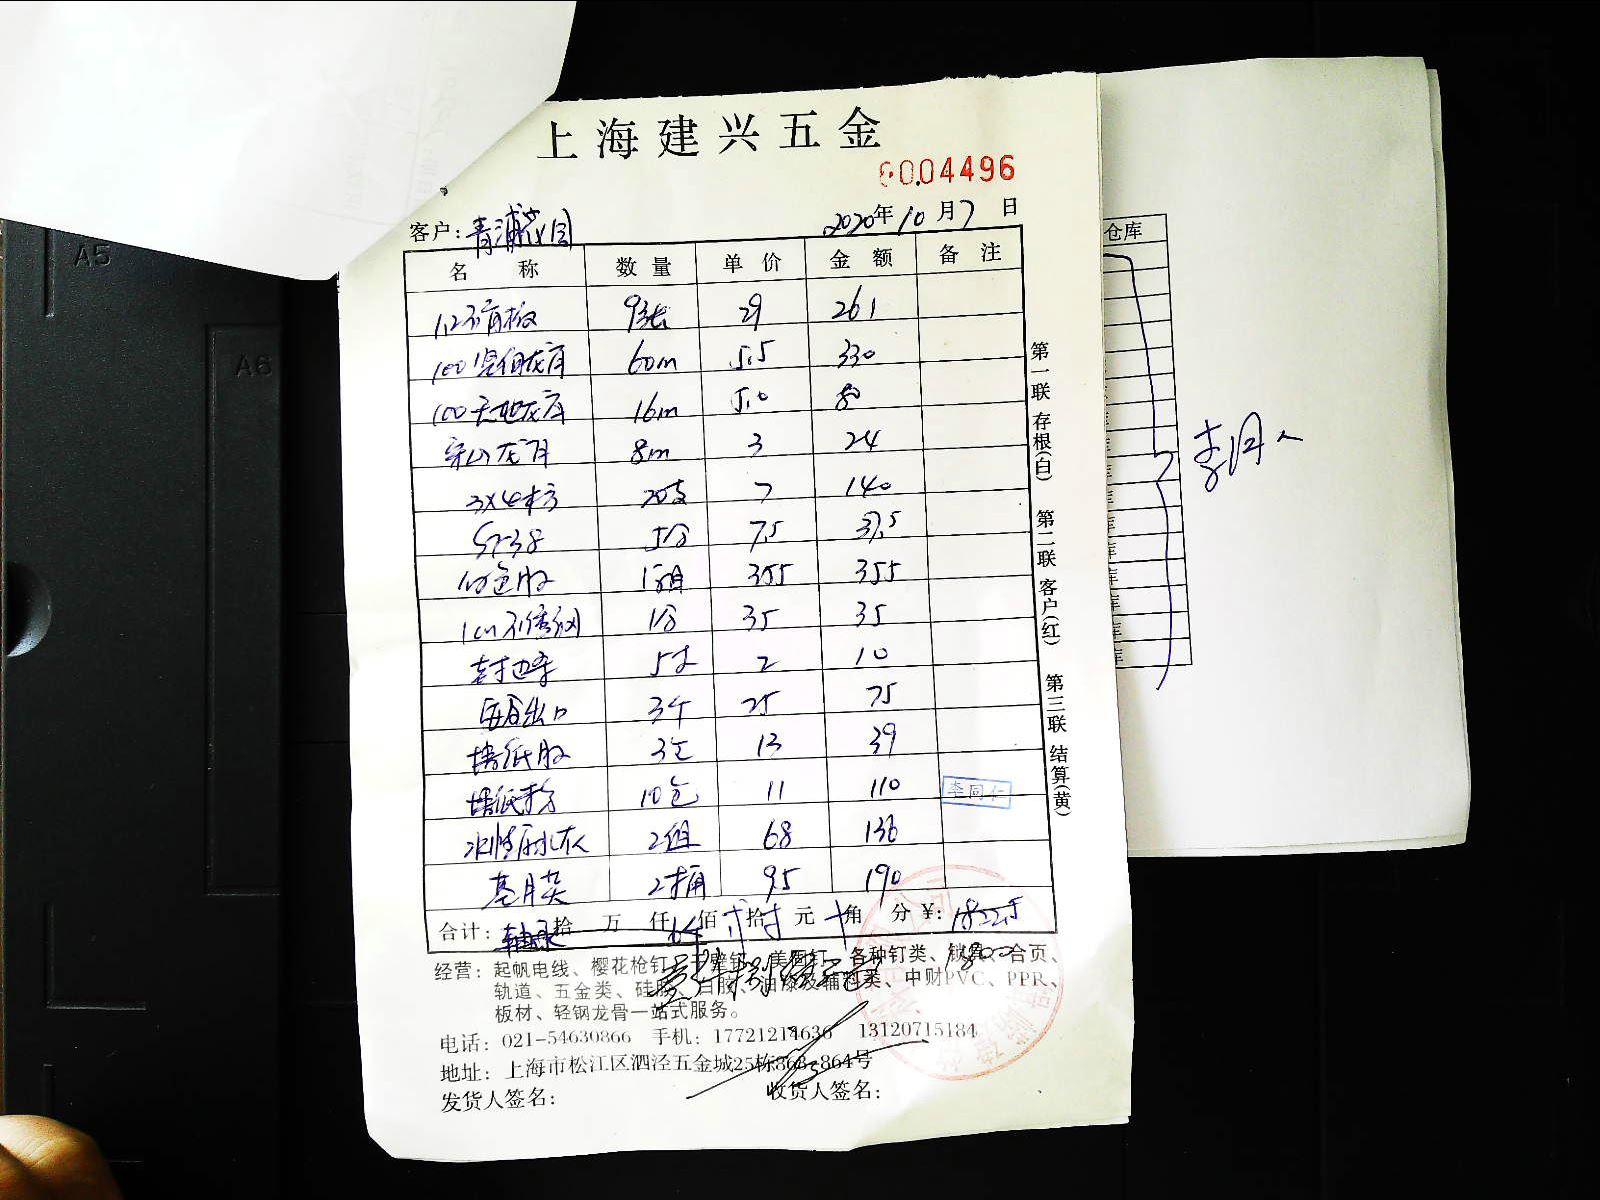 A5
A6
上海建兴五金
6004496
客户:青浦校园
2020年10月7日
仓库
名称 数量 单价 金额 备注
1.2石膏板 9张 29 261
100竖向龙骨 60m 5.5 330
100天地龙骨 16m 5.0 80
穿心龙骨 8m 3 24
3X4木方 20支 7 140
ST38 5盒 7.5 37.5
1组 355 355
1盒 35 35
2 10
3个 25 75
墙纸胶 3包 13 39
墙纸粉 10包 11 110
李同仁
2组 68 136
基膜 2桶 95 190
合计: 拾 万 仟 佰 拾 元 角 分 ¥: 1822.5
1800
经营: 起帆电线、樱花枪钉、干壁钉、美固钉、各种钉类、锁具、合页、
轨道、五金类、硅胶、白胶、油漆及辅料类、中财PVC、PPR、
板材、轻钢龙骨一站式服务。
电话: 021-54630866 手机: 17721214636 13120715184
地址: 上海市松江区泗泾五金城25栋863-864号
发货人签名: 收货人签名:
第一联 存根(白) 第二联 客户(红) 第三联 结算(黄)
李同仁